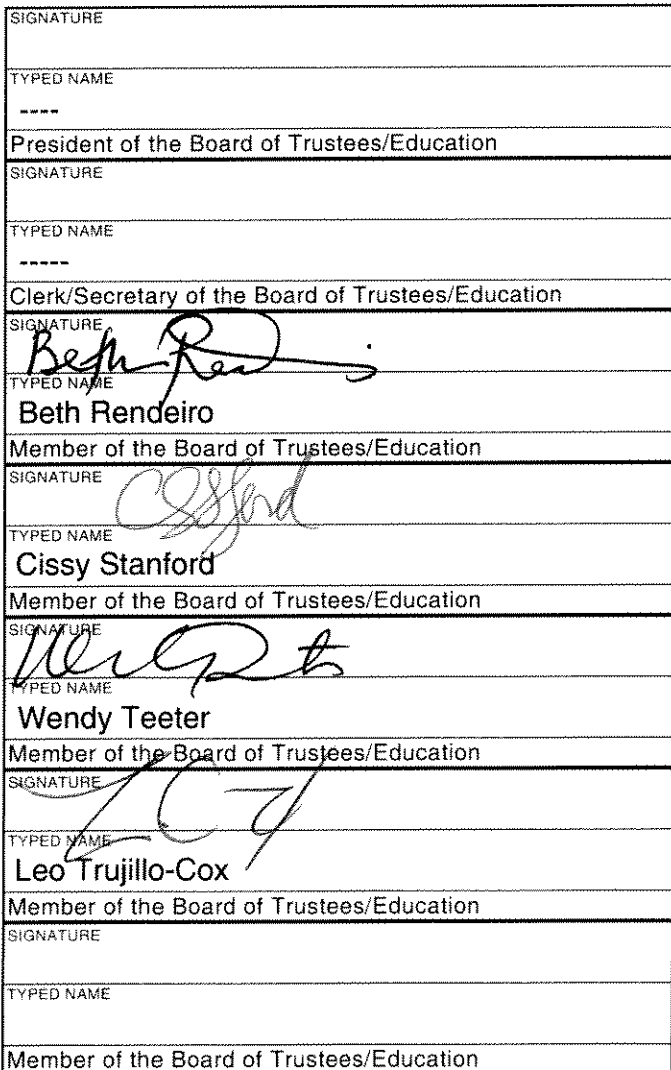 SIGNATURE
TYPED NAME
----
President of the Board of Trustees/Education
SIGNATURE
TYPED NAME
-----
Clerk/Secretary of the Board of Trustees/Education
SIGNATURE
Beth Rendeiro
TYPED NAME
Beth Rendeiro
Member of the Board of Trustees/Education
SIGNATURE
TYPED NAME
Cissy Stanford
Member of the Board of Trustees/Education
SIGNATURE
TYPED NAME
Wendy Teeter
Member of the Board of Trustees/Education
SIGNATURE
TYPED NAME
Leo Trujillo-Cox
Member of the Board of Trustees/Education
SIGNATURE
TYPED NAME
Member of the Board of Trustees/Education